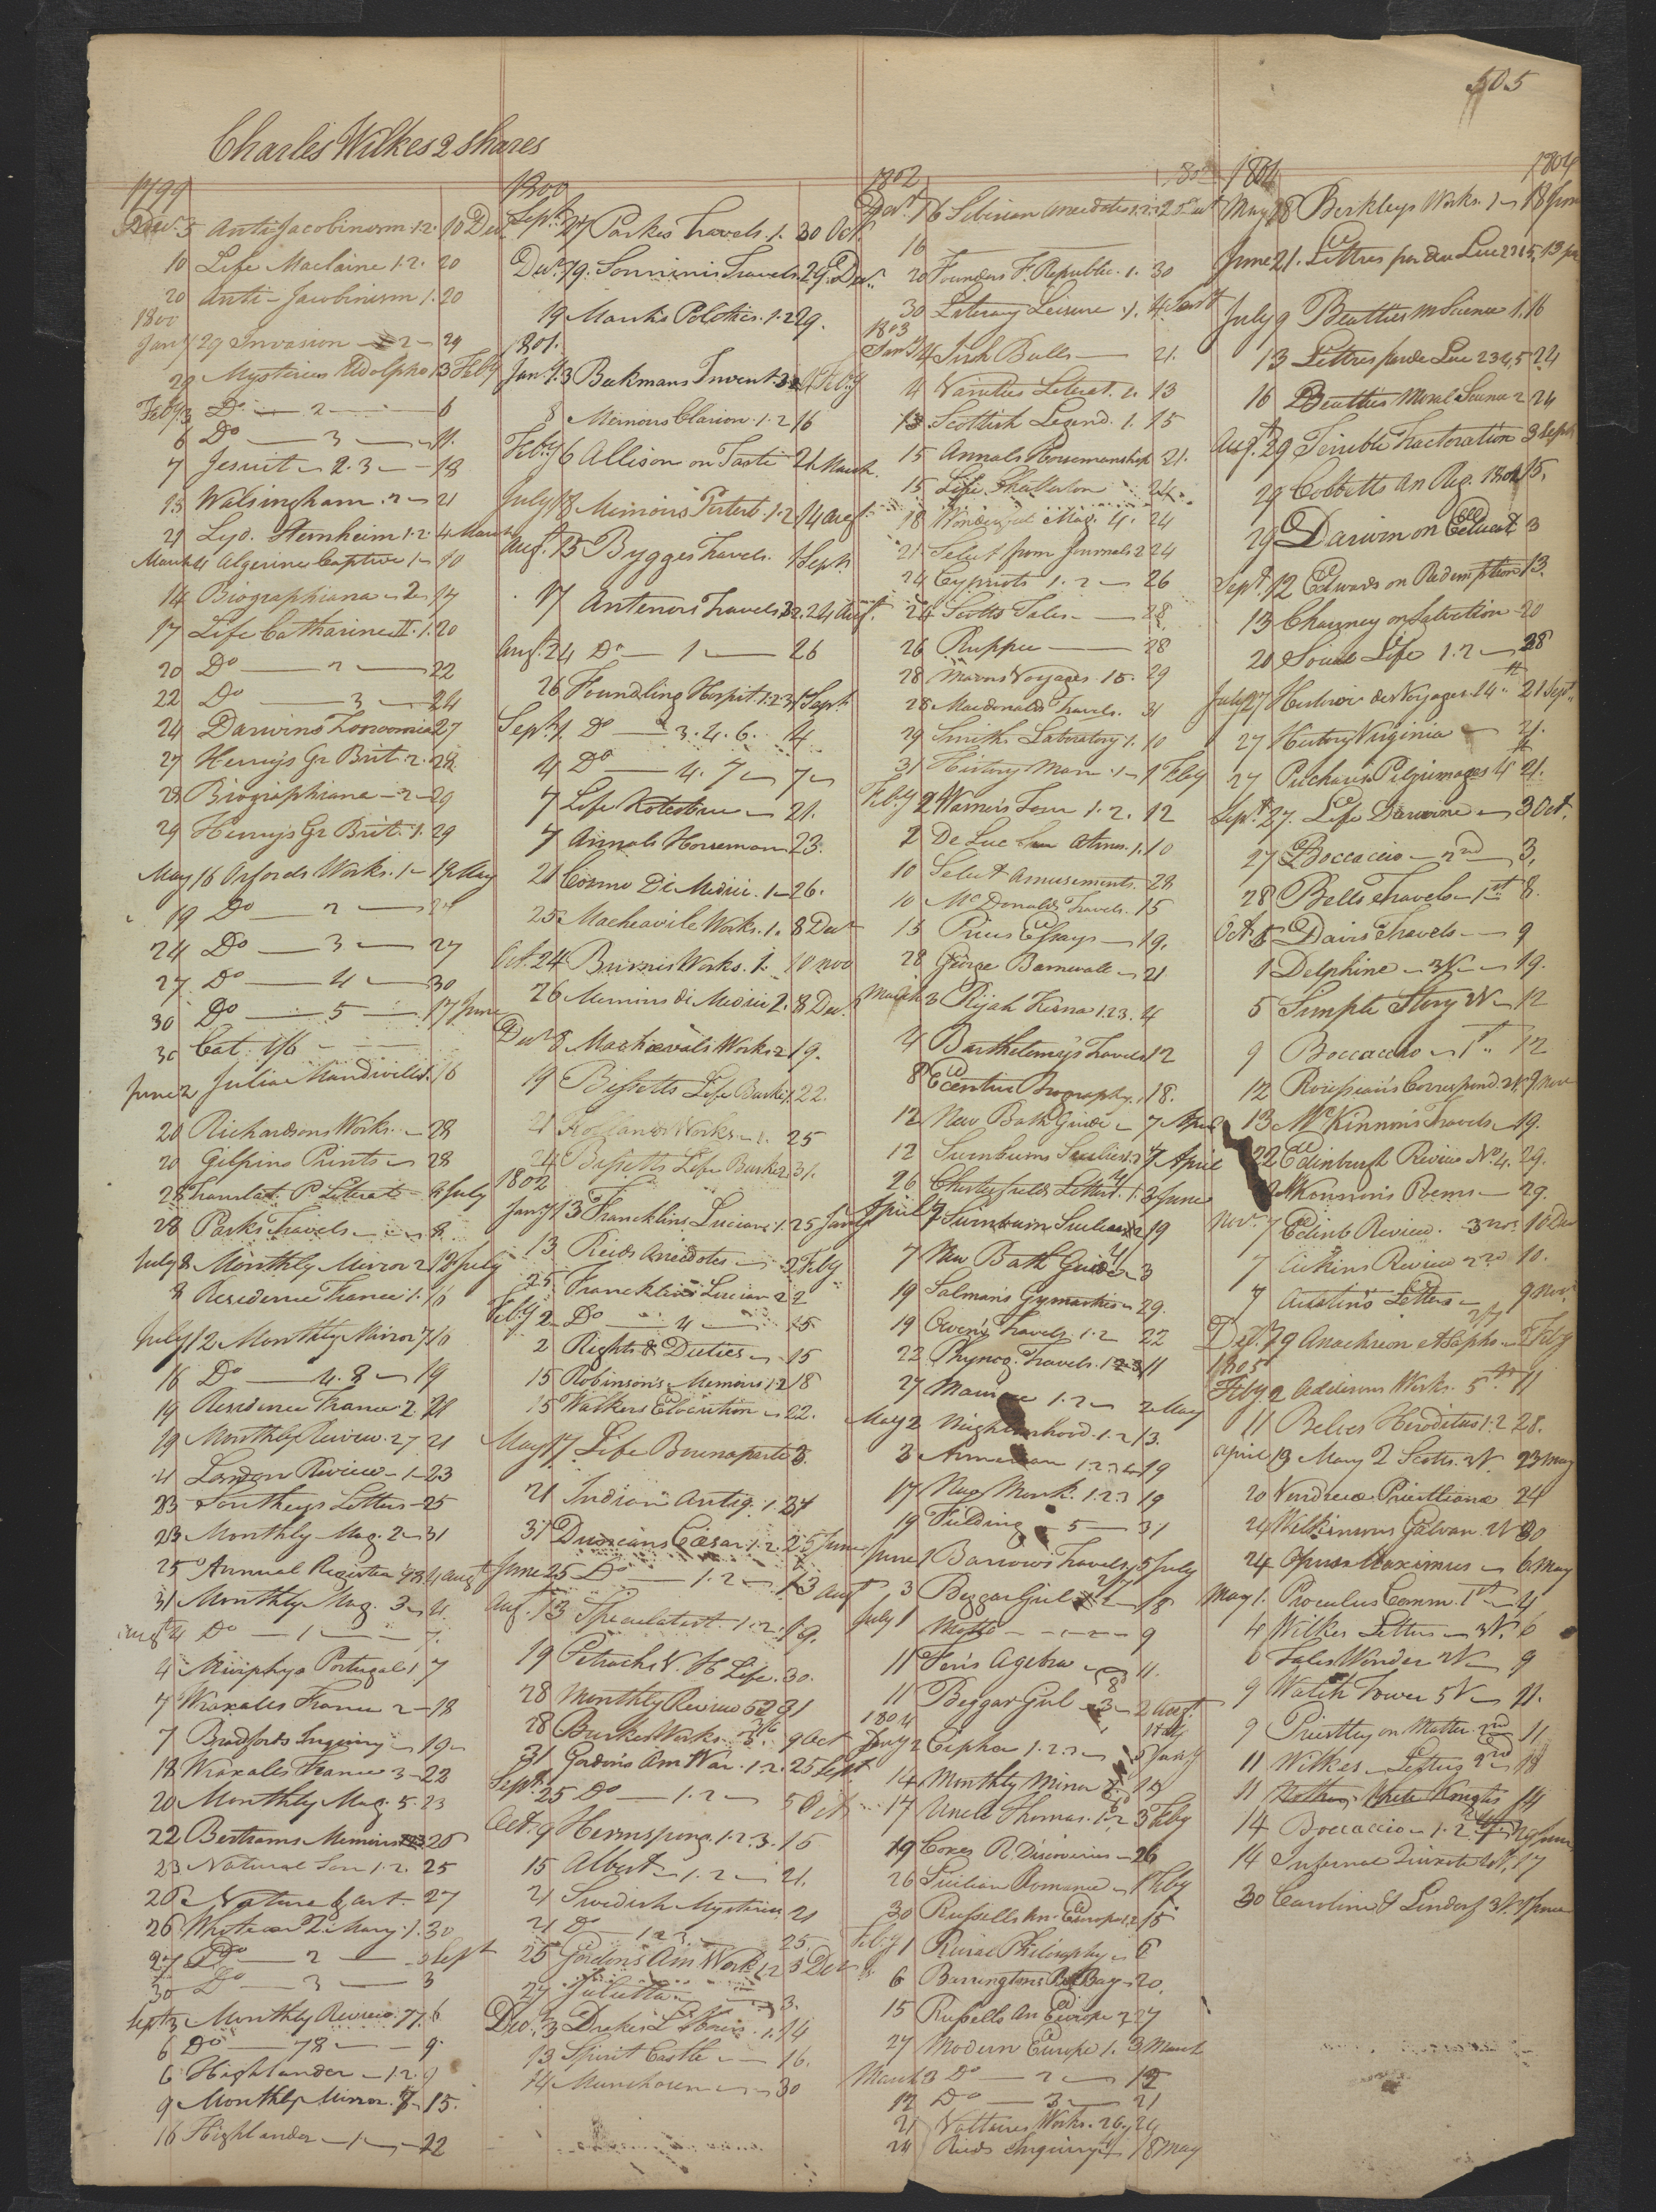 505
Charles Wilkes 2 Shares
1799
Decr. 5 Anti-Jacobinism 1.2. 10 Decr
10 Life Maclaine 1.2. 20
20 Anti-Jacobinism 1. 20
1800
Jany 29 Invasion 2 29
29 Mysteries Udolpho 1 3 Feby
Feby 3 Do 2 6
6 Do 3 11.
7 Jesuit 2.3 18
15 Walsingham 2 21
21 Lyd. Sternheim 1.2. 4 March
March 4 Algerine Captive 1 10
14 Biographiana 2 17
17 Life Catharine II. 1. 20
20 Do 2 22
22 Do 3 24
24 Darwins Zoonomia 27
27 Henrys Gr Brit. 2. 28
28 Biographiana 2 29
29 Henrys Gr Brit. 1. 29
May 16 Orfords Works. 1 19 May
19 Do 2 24
24 Do 3 27
27 Do 4 30
30 Do 5 17 June
30 Cat. 1/6
June 2 Julia Mandiville 1. 16
20 Richardsons Works. 28
20 Gilpins Prints 28
28 Translat. P Literat. 8 July
28 Parks Travels 8
July 8 Monthly Mirror 2 12 July
8 Residence France 1. 16
July 12 Monthly Mirror 7 16
16 Do 4. 8 19
19 Residence France 2. 21
19 Monthly Review. 27 21
21 London Review 1 23
23 Southeys Letters 25
23 Monthly Mag. 2 31
25 Annual Register 98 4 Augt
31 Monthly Mag. 3 4.
Augt 4 Do 1 7.
4 Murphys Portugal 1 7
7 Wraxalls France 2 18
7 Bradfords Inquiry 19
18 Wraxalls France 3 22
20 Monthly Mag. 5. 23
22 Bertrams Memoirs 1 2 3 25
23 Natural Son 1.2. 25
26 Nature & art 27
26 Whitaker Q. Mary. 1. 30
27 Do 2 3 Sept
30 Do 3 3
Sept 3 Monthly Review. 77. 6
6 Do 78 9
6 Highlander 1.2. 9
9 Monthly Mirror. 7 15.
16 Highlander 1 22
1800
Sept. 27 Parkes Travels. 1. 30 Oct.
Decr. 19. Sonninis Travels. 29. Decr.
19 Marshs Politics. 1.2 29.
1801.
Jany. 3 Beckmans Invent. 3 4 Feby
8 Memoirs Clarion. 1.2 16
Feby 6 Allison on Taste 21. March
July 18 Memoirs Pertest. 1.2 14 Augt.
Augt. 15 Bygges Travels. 1 Sept.
17 Antenors Travels 3.2. 24 Augt.
Augt. 24 Do 1 26
26 Foundling Hospit. 1.2.3 1 Sept.
Sept. 1 Do 3. 4. 6. 4
4 Do 4. 7 7
7 Life Kotzebue 21.
7 Annals Horseman 23.
21 Cosmo Di Medici. 1 26.
25 Macheavils Works. 1. 8 Decr
Oct. 24 Burns's Works. 1. 10 Nov
26 Memoirs di Medici 2. 8 Decr.
Decr 8 Machiavals Works 2 19.
19 Bissetts Life Burke 1. 22.
21 Works 1. 25
24 Bissetts Life Burke 2 31.
1802
Jany 13 Francklins Lucian 1. 25 Jany
13 Reids Anecdotes 2 Feby
25 Francklins Lucian 2 2
Feby 2 Do 4 15
2 Rights & Duties 15
15 Robinson's Memoirs 1.2 18
15 Walkers Elocution 22.
May 17 Life Buonaparte 3.
21 Indian Antiq. 1. 31
31 Duncans Cæsar 1.2. 25 June
June 25 Do 1.2 13 Augt
Augt. 13 Speculatist. 1.2. 19.
19 Petrarchs V. H Life. 30.
28 Monthly Review 52 31
28 Burkes Works. 3. 9 Oct
31 Gordons Am War. 1.2. 25 Sept
Sept. 25 Do 1.2 5 Oct
Oct. 9 Hermsprong. 1.2.3. 15
15 Albert 1.2 21.
21 Swedish Mysteries 21
21 Do 1.2.3 25.
25 Gordons Am War 1.2 3 Decr
27 Julietta 3.
Decr. 3 Drakes L Hours. 1. 14
13 Spirit Castle 16.
14 Munchosen 30
1802
Decr. 16 Siberian Anecdotes 1.2.3 25 Decr
16
20 Founders F. Republic. 1. 30
30 Literary Leisure. 1. 4 Jany
1803
Jany 4 Irish Bulls 21.
4 Varieties Literat. 2. 13
13 Scottish Legend. 1. 15
15 Annals Horsemanship 21.
15 Life Challerton 24
18 Wonderful Mag. 4. 24
21 Select from Journals 2 24
24 Cypriots 1.2 26
24 Scotts Tales 28
26 Ruppee 28
28 Mavors Voyages. 15. 29
28 Macdonalds Travels. 31
29 Smiths Laboratory 1. 10
31 History Man. 1 1 Feby
Feby 2 Warners Tour 1.2. 12
2 De Luc Atmos. 1. 10
10 Select Amusements. 28
10 McDonalds Travels. 15
15 Prices Essays 19.
28 George Barnwell 21
March 3 Rijah Kisna 1.2.3. 4
4 Barthelemys Travels 12
8 Eccentric Biography. 18.
12 New Bath Guide 7 April
12 Swinburns Sicilies 1.2 7 April
26 Chesterfields Letters. 1. 3 June
April 7 Swinburn Sicilies 2 19
7 New Bath Guide 3
19 Salmans Gymnastics 29.
19 Owens Travels 1.2 22
22 Physiog. Travels. 1.2.3 11
27 Maurice 1.2 2 May
May 2 Neighborhood. 1.2 13.
3 Armenian 1.2.3.4 19
17 New Monk. 1.2.3 19
19 Fielding 5 31
June 1 Barrows Travels 5 July
3 Beggar Girl 2 18
July 1 Motto 9
11 Fenns Agebra 11.
11 Beggar Girl 3 2 Augt.
1804
Jany 2 Cipher 1.2.3 5 Jany
14 Monthly Mirror 8. 19
17 Uncle Thomas. 1.2 3 Feby
19 Coxes R. Discoveries 26
26 Sicilian Romance 1 Feby
30 Russells An. Europe 1.2 15
Feby 1 Rural Philosophy 6
6 Barringtons Bot Bay 20.
15 Russells An Europe 2 27
27 Modern Europe 1. 3 March
March 3 Do 2 12
12 Do 3 21
21 Voltaires Works. 26 24
24 Reids Inquiry 18 May
1804
1804
May 28 Berkleys Works. 1 18 June
June 21. Lettres par De Luc 2 3 4 5, 13 July
July 9 Beatties M Science 1. 16
13 Lettres par De Luc 2 3 4, 5 24
16 Beatties Moral Science 2 24
Augt. 29 Terrible Tractoration 3 Sept
29 Cobbetts An Reg. 1802 15.
29 Darwin on Educat 3
Sept. 12 Edwards on Redemption 13.
13 Chauncy on Salvation 20
20 Social Life 1.2 28
July 27 Histoire des Voyages. 14 21 Sept
27 History Virginia 21.
27 Purchas's Pilgrimages 4 21.
Sept. 27. Life Darwine 3 Oct.
27 Boccaccio 2nd 3.
28 Bells Travels 1st 8.
Oct. 1 Davis Travels 9
1 Delphine 3V 19.
5 Simple Story 2V 12
9 Boccaccio 1st 12
12 Rousseau's Correspond. 2V. 9 Nov
13 McKinnons Travels 19.
22 Edinburgh Review No. 4. 29.
Poems 29.
Nov. 7 Edinb Review. 3 nos. 10 Dec
7 Aickins Review 2nd 10.
7 Austin's Letters 9 Nov.
Decr. 29 Anachreon & Sapho 2 Feby
1805
Feby. 2 Addisons Works. 5th 11
11 Beloes Heroditus 1.2 28.
April 13 Mary 2 Scotts. 2V. 23 May
20 Vindiciæ Priestlianæ 24
24 Wilkinsons Galvan. 2V 30
24 Opus Maximus 6 May
May 1. Proculus Comm. 1st 4
4 Wilkes Letters 3V. 6
6 Tales Wonder 2V 9
9 Watch Tower 5V 11.
9 Priestley on Matter. 2nd 11
11 Wilkes Letters 2nd 18
11 White Knights 14
14 Boccaccio 1.2. 20 June
14 Infernal Quixote 17
30 Caroline of Lindorf 3V. 4 June